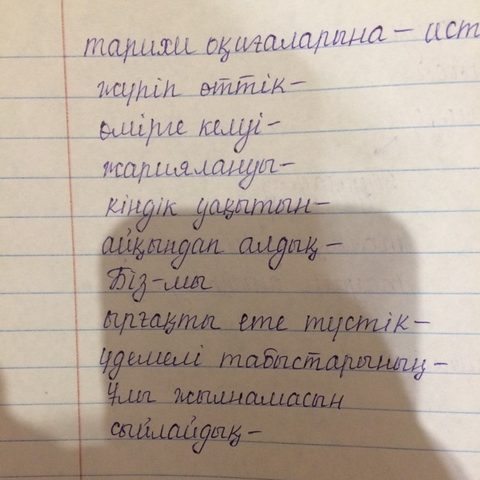 тарихи оқиғаларына – ист
жүріп өттік –
өмірге келуі –
жариялануы –
кіндік уақытын –
айқындап алдық –
Біз - мы
ырғақты ете түстік –
үдемелі табыстарының –
Ұлы жылнамасын
сыйлайдық –